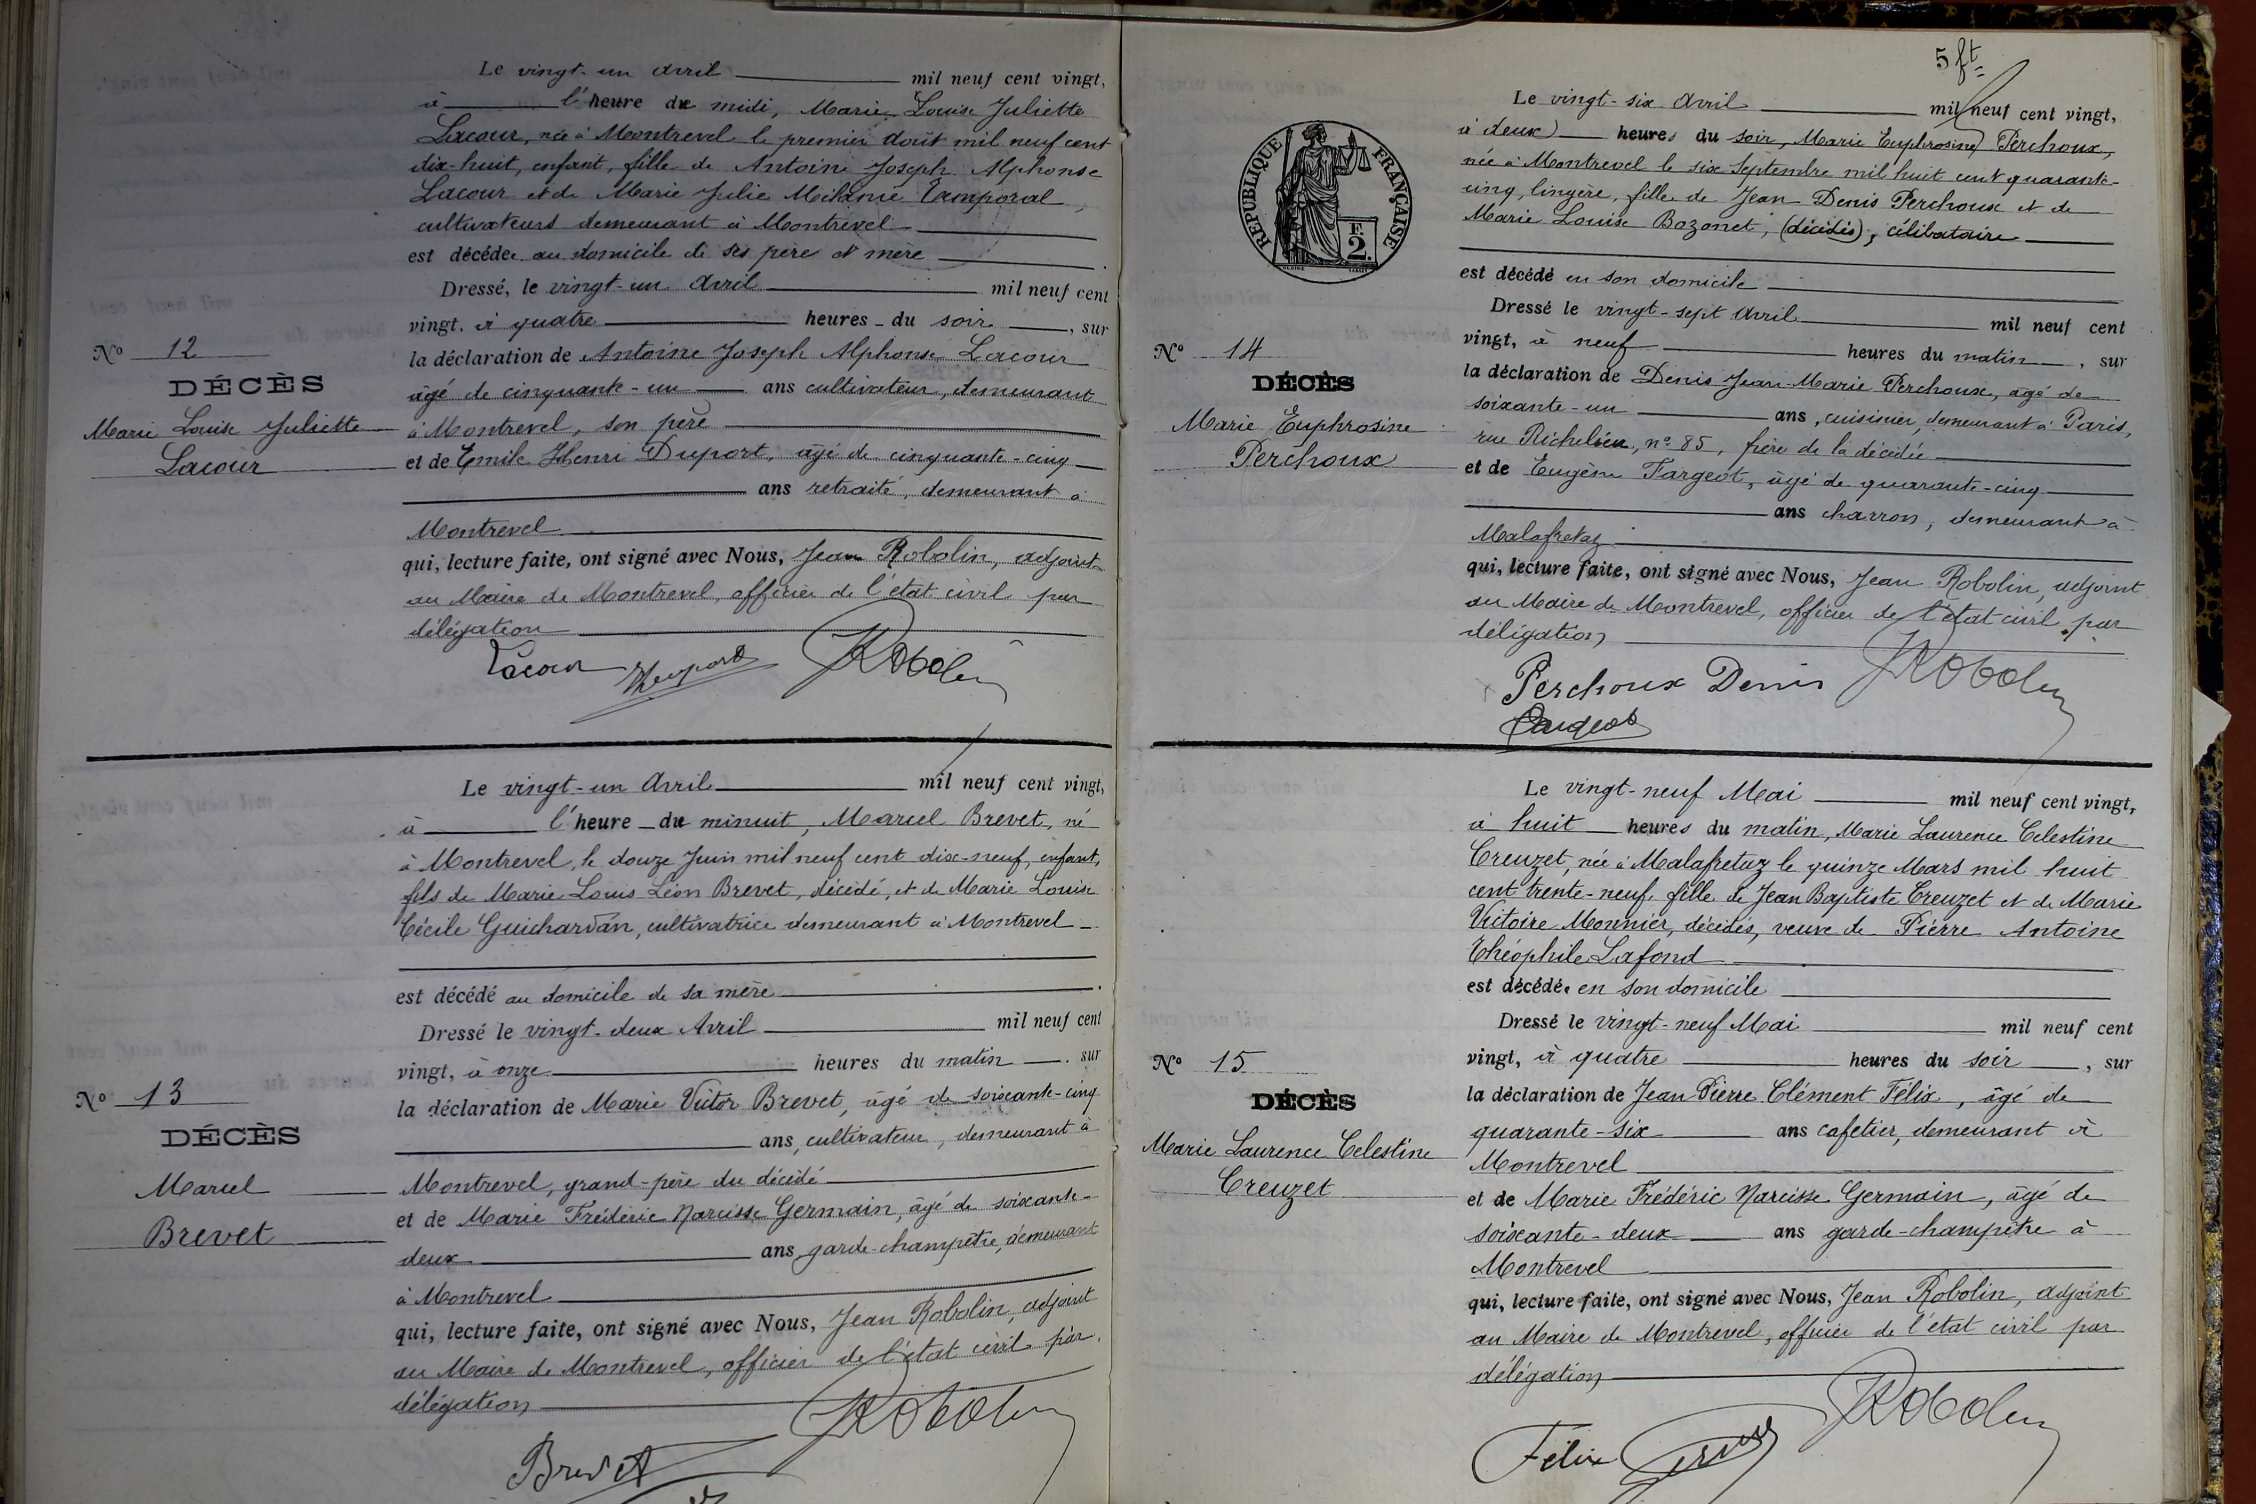 Le vingt-un Avril mil neuf cent vingt,
à l'heure de midi, Marie Louise Juliette
Lacour, née à Montrevel le premier Août mil neuf cent
dix-huit, enfant, fille de Antoine Joseph Alphonse
Lacour et de Marie Julie Mélanie Tamporal,
cultivateurs demeurant à Montrevel
est décédée au domicile de ses père et mère
Dressé, le vingt-un Avril mil neuf cent
vingt, à quatre heures du soir, sur
la déclaration de Antoine Joseph Alphonse Lacour
âgé de cinquante-un ans cultivateur, demeurant
à Montrevel, son père
et de Emile Henri Duport, âgé de cinquante-cinq
ans retraité, demeurant à
Montrevel
qui, lecture faite, ont signé avec Nous, Jean Robolin, adjoint
au Maire de Montrevel, officier de l'état civil par
délégation
Lacour Duport JRobolin
No 12
DÉCÈS
Marie Louise Juliette
Lacour
Le vingt-un Avril mil neuf cent vingt,
à l'heure de minuit, Marcel Brevet, né
à Montrevel, le douze Juin mil neuf cent dix-neuf, enfant,
fils de Marie Louis Léon Brevet, décédé, et de Marie Louise
Cécile Guichardan, cultivatrice demeurant à Montrevel
est décédé au domicile de sa mère
Dressé le vingt-deux Avril mil neuf cent
vingt, à onze heures du matin, sur
la déclaration de Marie Victor Brevet, âgé de soixante-cinq
ans, cultivateur, demeurant à
Montrevel, grand-père du décédé
et de Marie Frédéric Narcisse Germain, âgé de soixante-
deux ans, garde-champêtre, demeurant
à Montrevel
qui, lecture faite, ont signé avec Nous, Jean Robolin, adjoint
au Maire de Montrevel, officier de l'état civil par
délégation
Brevet JRobolin
No 13
DÉCÈS
Marcel
Brevet
5 ft
RÉPUBLIQUE FRANÇAISE
F.
2.
Le vingt-six Avril mil neuf cent vingt,
à deux heures du soir, Marie Euphrosine Perchoux,
née à Montrevel le six Septembre mil huit cent quarante-
cinq, lingère, fille de Jean Denis Perchoux et de
Marie Louise Bozonet, (décédés), célibataire
est décédé en son domicile
Dressé le vingt-sept Avril mil neuf cent
vingt, à neuf heures du matin, sur
la déclaration de Denis Jean-Marie Perchoux, âgé de
soixante-un ans, cuisinier, demeurant à Paris,
rue Richelieu, no 85, frère de la décédée
et de Eugène Fargeot, âgé de quarante-cinq
ans charron, demeurant à
Malafretaz
qui, lecture faite, ont signé avec Nous, Jean Robolin, adjoint
au Maire de Montrevel, officier de l'état civil par
délégation
Perchoux Denis JRobolin
No 14
DÉCÈS
Marie Euphrosine
Perchoux
Le vingt-neuf Mai mil neuf cent vingt,
à huit heures du matin, Marie Laurence Celestine
Creuzet, née à Malafretaz le quinze Mars mil huit
cent trente-neuf, fille de Jean Baptiste Creuzet et de Marie
Victoire Monnier, décédés, veuve de Piérre Antoine
Théophile Lafond
est décédée en son domicile
Dressé le vingt-neuf Mai mil neuf cent
vingt, à quatre heures du soir, sur
la déclaration de Jean Pierre Clément Félix, âgé de
quarante-six ans cafetier, demeurant à
Montrevel
et de Marie Frédéric Narcisse Germain, âgé de
soixante-deux ans garde-champêtre à
Montrevel
qui, lecture faite, ont signé avec Nous, Jean Robolin, adjoint
au Maire de Montrevel, officier de l'état civil par
délégation
Félix JRobolin
No 15
DÉCÈS
Marie Laurence Celestine
Creuzet